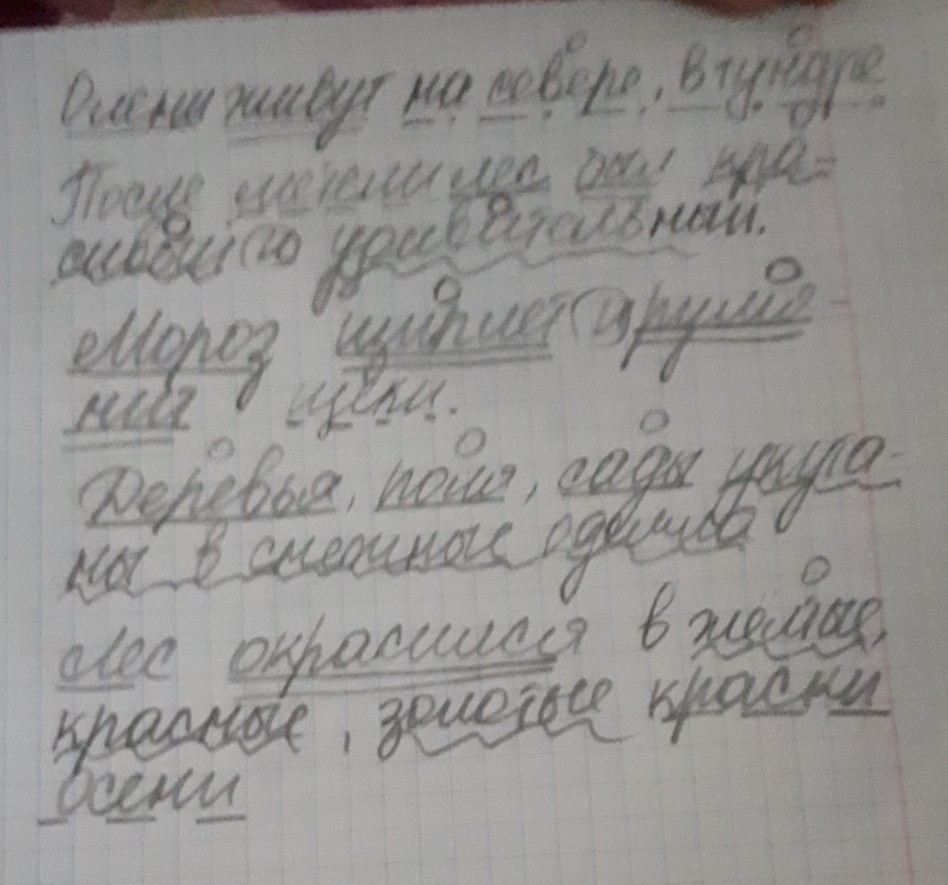 Олени живут на севере, в тундре
После метели лес был кра-
сивый, удивительный.
Мороз щиплет и румя-
нит щёки.
Деревья, поля, сады укута-
ны в снежные одеяла
Лес окрасился в жёлтые,
красные, золотые краски
осени